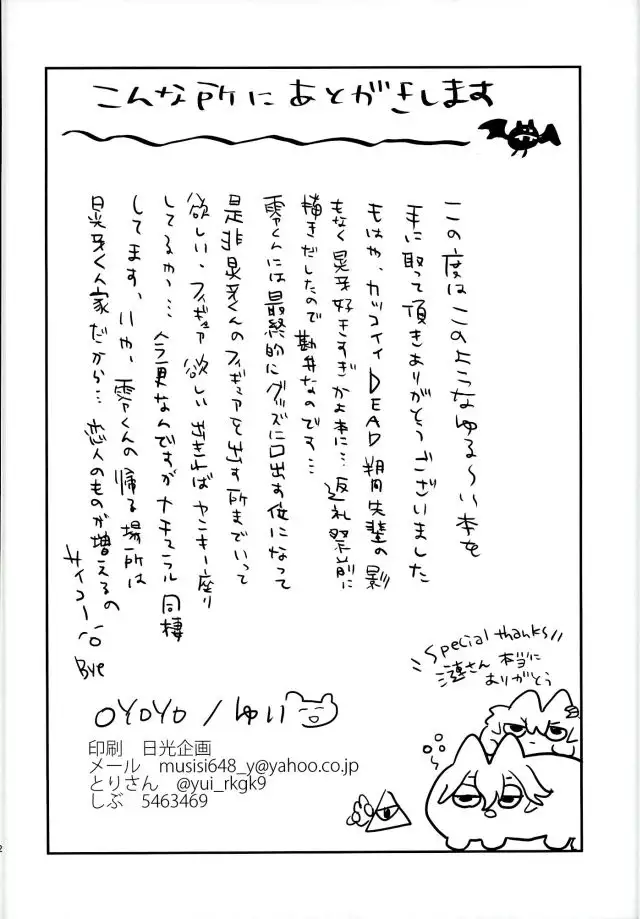 こんな所にあとがきします
この度はこのようなゆる～い本を
手に取って頂きありがとうございました
もはや、カッコイイDEAD朔間先輩の影
もなく晃牙好きすぎかよ本に…返礼祭前に
描きだしたので勘弁なのです…
零くんには最終的にグッズに口出す位になって
是非晃牙くんのフィギュアを出す所までいって
欲しい、フィギュア欲しい 出きればヤンキー座り
してるやつ…今更なんですがナチュラル同棲
してます、いや、零くんの帰る場所は
晃牙くん家だから…恋人のものが増えるの
サイコー
Bye
Special thanks!!
さん 本当に
ありがとう
OYOYO / ゆい
印刷 日光企画
メール musisi648_y@yahoo.co.jp
とりさん @yui_rkgk9
しぶ 5463469
2